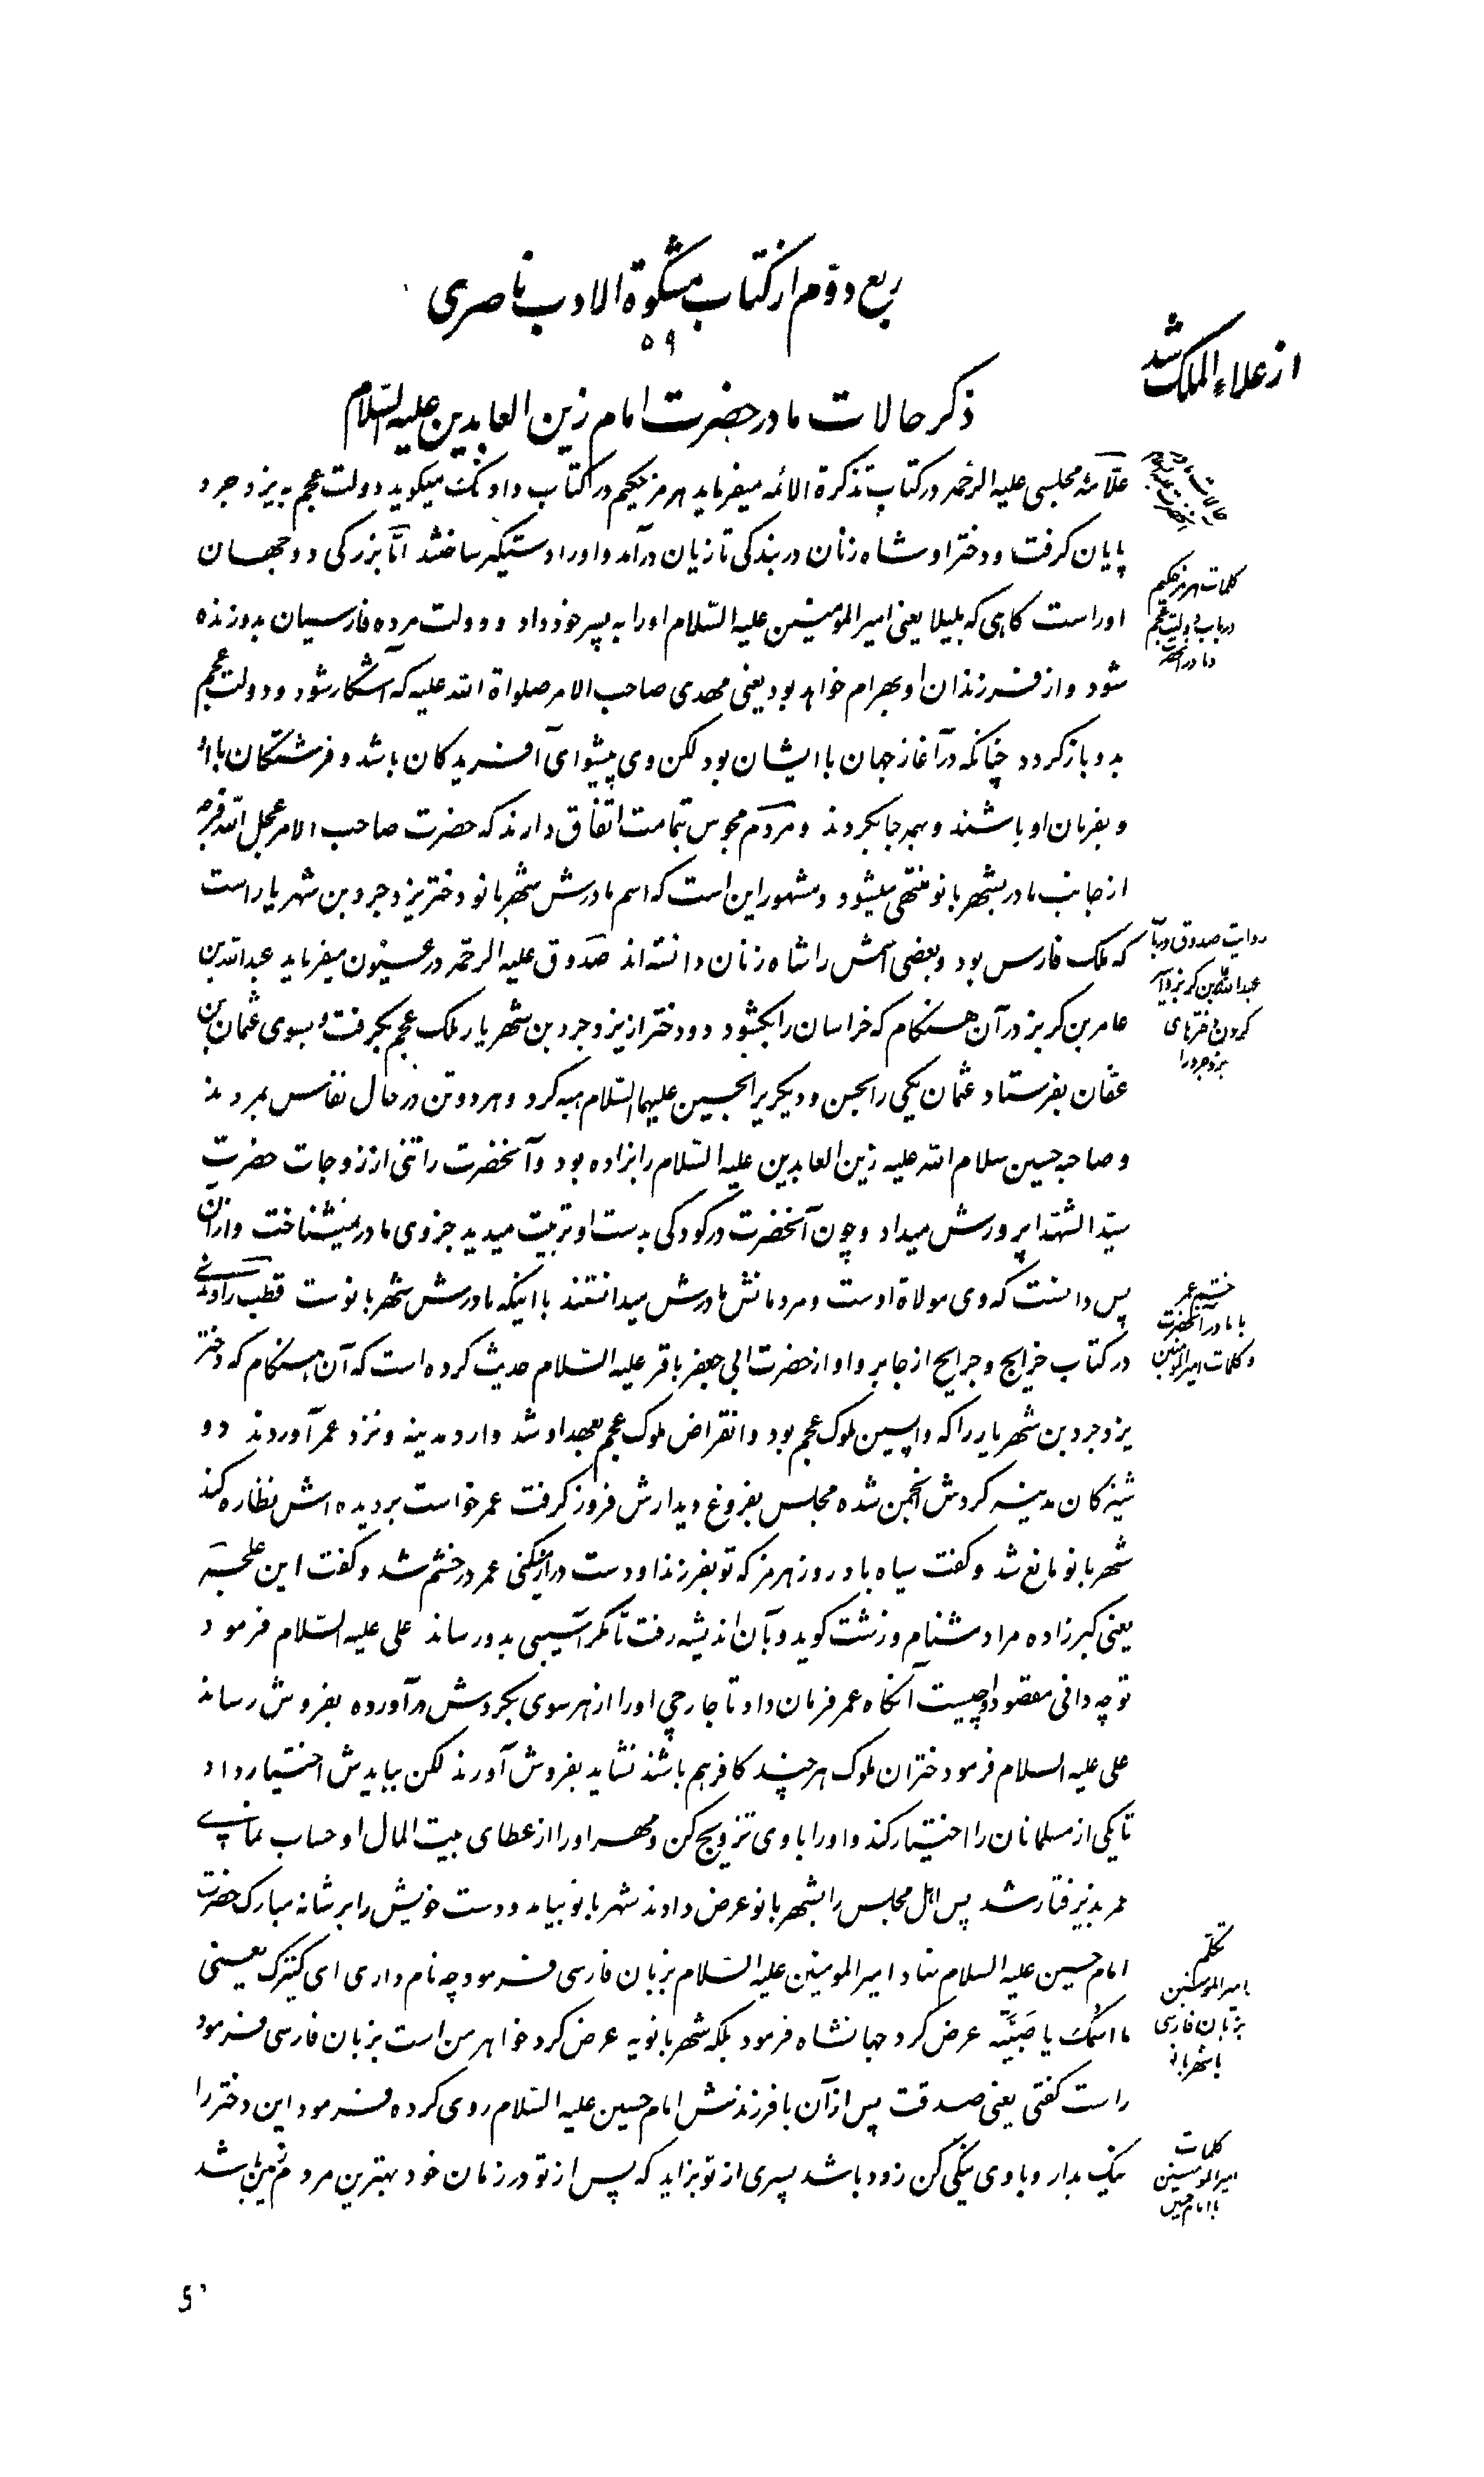 ربع دوّم از کتاب مشکوة الادب ناصری
۵۹
از علاء الملک شد
ذکر حالات مادر حضرت امام زین العابدین علیه السّلام
علّامهٔ مجلسی علیه الرّحمه در کتاب تذکرة الائمه میفرماید هرمز حکیم در کتاب داونک میگوید دولت عجم به یزدجرد
پایان گرفت و دختر او شاه زنان در بندگی تازیان درآمد و او را دستگیر ساختند امّا بزرگی دو جهان
او راست گاهی که بلیلا یعنی امیر المومنین علیه السّلام او را به پسر خود داد و دولت مرده فارسیان بدو زنده
شود و از فرزندان او بهرام خواهد بود یعنی مهدی صاحب الامر صلواة الله علیه که آشکار شود و دولت عجم
بدو بازگردد چنانکه در آغاز جهان با ایشان بود لکن وی پیشوای آفریدگان باشد و فرشتگان با او
و بفرمان او باشند و بهر جا بگردند و مردم مجوس بتمامت اتّفاق دارند که حضرت صاحب الامر عجل الله فرجه
از جانب مادر بشهربانو منتهی میشود و مشهور این است که اسم مادرش شهربانو دختر یزدجرد بن شهریار است
که ملک فارس بود و بعضی اسمش را شاه زنان دانسته‌اند صدوق علیه الرحمه در عیون میفرماید عبدالله بن
عامر بن کریز در آن هنگام که خراسان را بگشود دو دختر از یزدجرد بن شهریار ملک عجم بگرفت و بسوی عثمان بن
عفّان بفرستاد عثمان یکی را بحسن و دیگری را بحسین علیهما السّلام هبه کرد و هر دو تن در حال نفاس بمردند
و صاحبه حسین سلام الله علیه زین العابدین علیه السّلام را بزاده بود و آنحضرت را تنی از زوجات حضرت
سیّد الشّهدا پرورش میداد و چون آنحضرت در کودکی بدست او تربیت میدید جز وی مادر نمیشناخت و از آن
پس دانست که وی مولاة اوست و مردمانش مادرش میدانستند با اینکه مادرش شهربانوست قطب راوندی
در کتاب خرایج و جرایح از جابر و او از حضرت ابی جعفر باقر علیه السّلام حدیث کرده است که آن هنگام که دختر
یزدجرد بن شهریار را که واپسین ملوک عجم بود و انقراض ملوک عجم بعهد او شد وارد مدینه و نزد عمر آوردند دو
شیزگان مدینه گردش انجمن شده مجلس بفروغ دیدارش فروز گرفت عمر خواست بر دیده‌اش نظاره کند
شهربانو مانع شد و گفت سیاه باد روز هرمز که تو بفرزند او دست دراز کنی عمر در خشم شد و گفت این علجه
یعنی گبرزاده مرا دشنام و زشت گوید و بآن اندیشه رفت تا مگر آسیبی بدو رساند علی علیه السّلام فرمود
تو چه دانی مقصود او چیست آنگاه عمر فرمان داد تا جارچی او را از هر سوی بگردش درآورده بفروش رساند
علی علیه السلام فرمود دختران ملوک هر چند کافر هم باشند نشاید بفروش آورند لکن ببایدش اختیار داد
تا یکی از مسلمانان را اختیار کند و او را با وی تزویج کن و مهر او را از عطای بیت المال او حساب نمائی
عمر پذیرفتار شد پس اهل مجلس را بشهربانو عرض دادند شهربانو بیامد و دست خویش را بر شانه مبارک حضرت
امام حسین علیه السلام نهاد امیر المومنین علیه السّلام بزبان فارسی فرمود چه نام داری ای کنیزک یعنی
ما اسمک یا صبیّه عرض کرد جهانشاه فرمود بلکه شهربانویه عرض کرد خواهر من است بزبان فارسی فرمود
راست گفتی یعنی صدقت پس از آن با فرزندش امام حسین علیه السّلام روی کرده فرمود این دختر را
نیک بدار و با وی نیکی کن زود باشد پسری از تو بزاید که پس از تو در زمان خود بهترین مردم زمین باشد
کلمات هرمز حکیم
در باب دولت عجم
روایت صدوق در باب
عبدالله بن کریز
دخترهای
یزدجرد را
خشم عمر
با مادر آنحضرت
و کلمات امیر المومنین
تکلّم
امیر المومنین
بزبان فارسی
با شهربانو
کلمات
امیر المومنین
با امام حسین